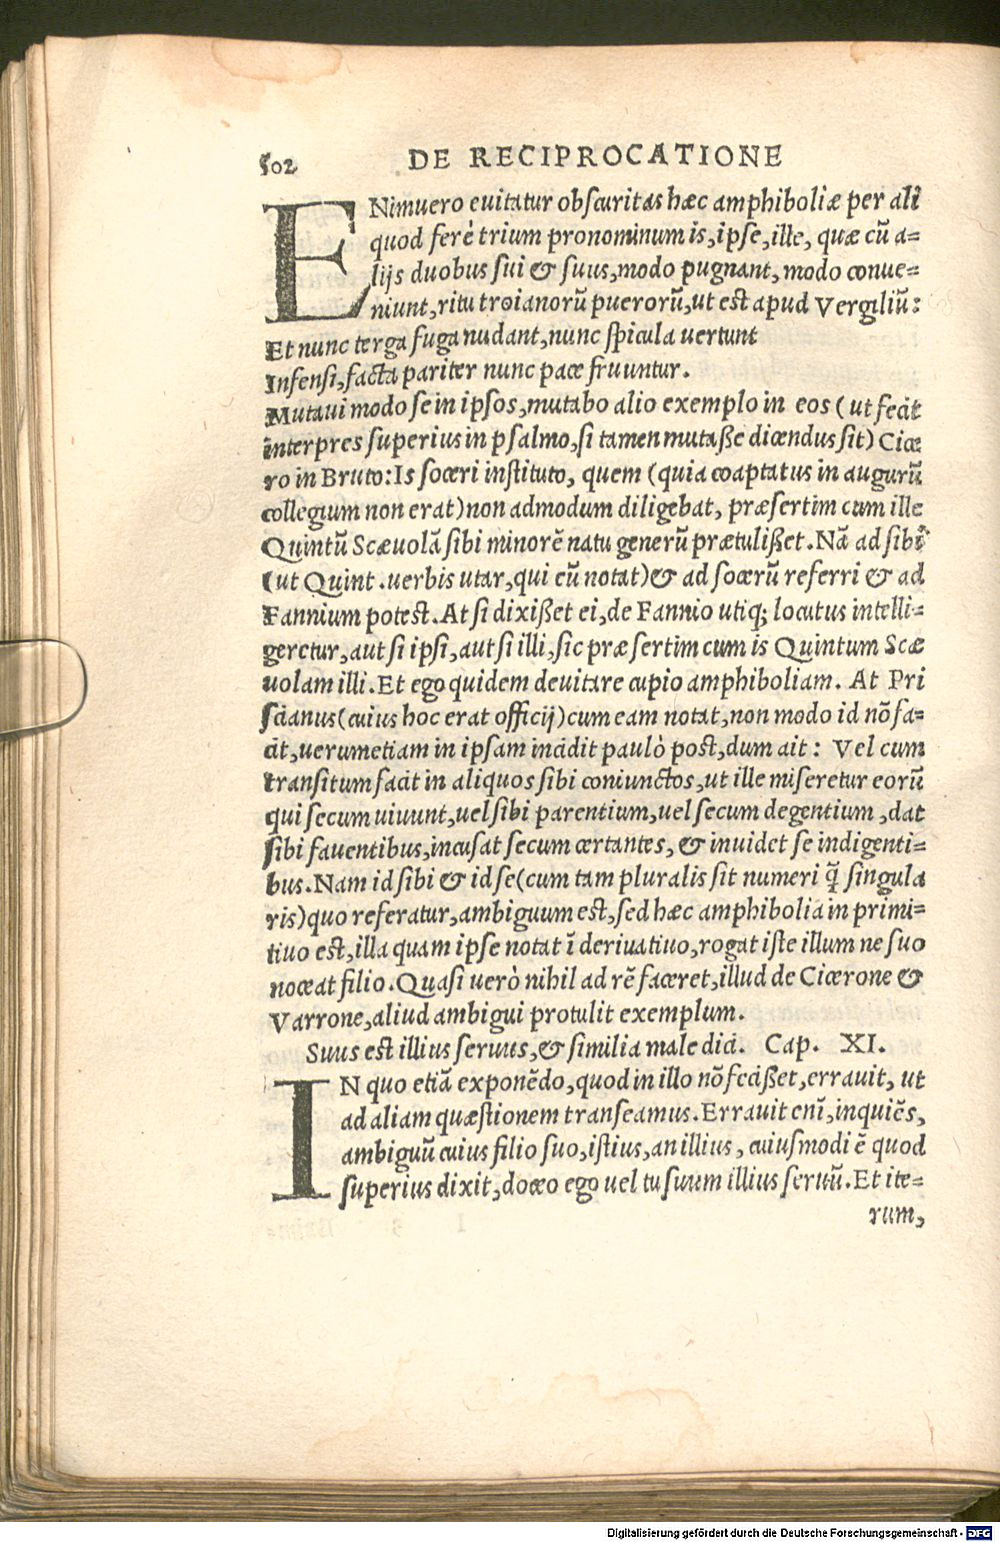 502 DE RECIPROCATIONE
ENimuero euitatur obscuritas hæc amphiboliæ per ali
quod ferè trium pronominum is, ipse, ille, quæ cũ a-
lijs duobus sui & suus, modo pugnant, modo conue-
niunt, ritu troianorũ puerorũ, ut est apud Vergiliũ:
Et nunc terga fuga nudant, nunc spicula uertunt
Infensi, facta pariter nunc pace fruuntur.
Mutaui modo se in ipsos, mutabo alio exemplo in eos (ut fecit
interpres superius in psalmo, si tamen mutaße dicendus sit) Cice
ro in Bruto: Is soceri instituto, quem (quia coaptatus in augurũ
collegium non erat) non admodum diligebat, præsertim cum ille
Quintũ Scæuolã sibi minorẽ natu generũ prætulißet. Nã ad sibi
(ut Quint. uerbis utar, qui eũ notat) & ad socerũ referri & ad
Fannium potest. At si dixißet ei, de Fannio utiq; locutus intelli-
geretur, aut si ipsi, aut si illi, sic præsertim cum is Quintum Scæ
uolam illi. Et ego quidem deuitare cupio amphiboliam. At Pri
scianus (cuius hoc erat officij) cum eam notat, non modo id nõ fa-
cit, uerumetiam in ipsam incidit paulò post, dum ait: Vel cum
transitum facit in aliquos sibi coniunctos, ut ille miseretur eorũ
qui secum uiuunt, uel sibi parentium, uel secum degentium, dat
sibi fauentibus, incusat secum certantes, & inuidet se indigenti-
bus. Nam id sibi & id se (cum tam pluralis sit numeri q̃ singula
ris) quo referatur, ambiguum est, sed hæc amphibolia in primi-
tiuo est, illa quam ipse notat ĩ deriuatiuo, rogat iste illum ne suo
noceat filio. Quasi uerò nihil ad rẽ faceret, illud de Cicerone &
Varrone, aliud ambigui protulit exemplum.
Suus est illius seruus, & similia male dici. Cap. XI.
IN quo etiã exponẽdo, quod in illo nõ fecißet, errauit, ut
ad aliam quæstionem transeamus. Errauit enĩ, inquiẽs,
ambiguũ cuius filio suo, istius, an illius, cuiusmodi ẽ quod
superius dixit, doceo ego uel tu suum illius seruũ. Et ite-
rum,
Digitalisierung gefördert durch die Deutsche Forschungsgemeinschaft - DFG